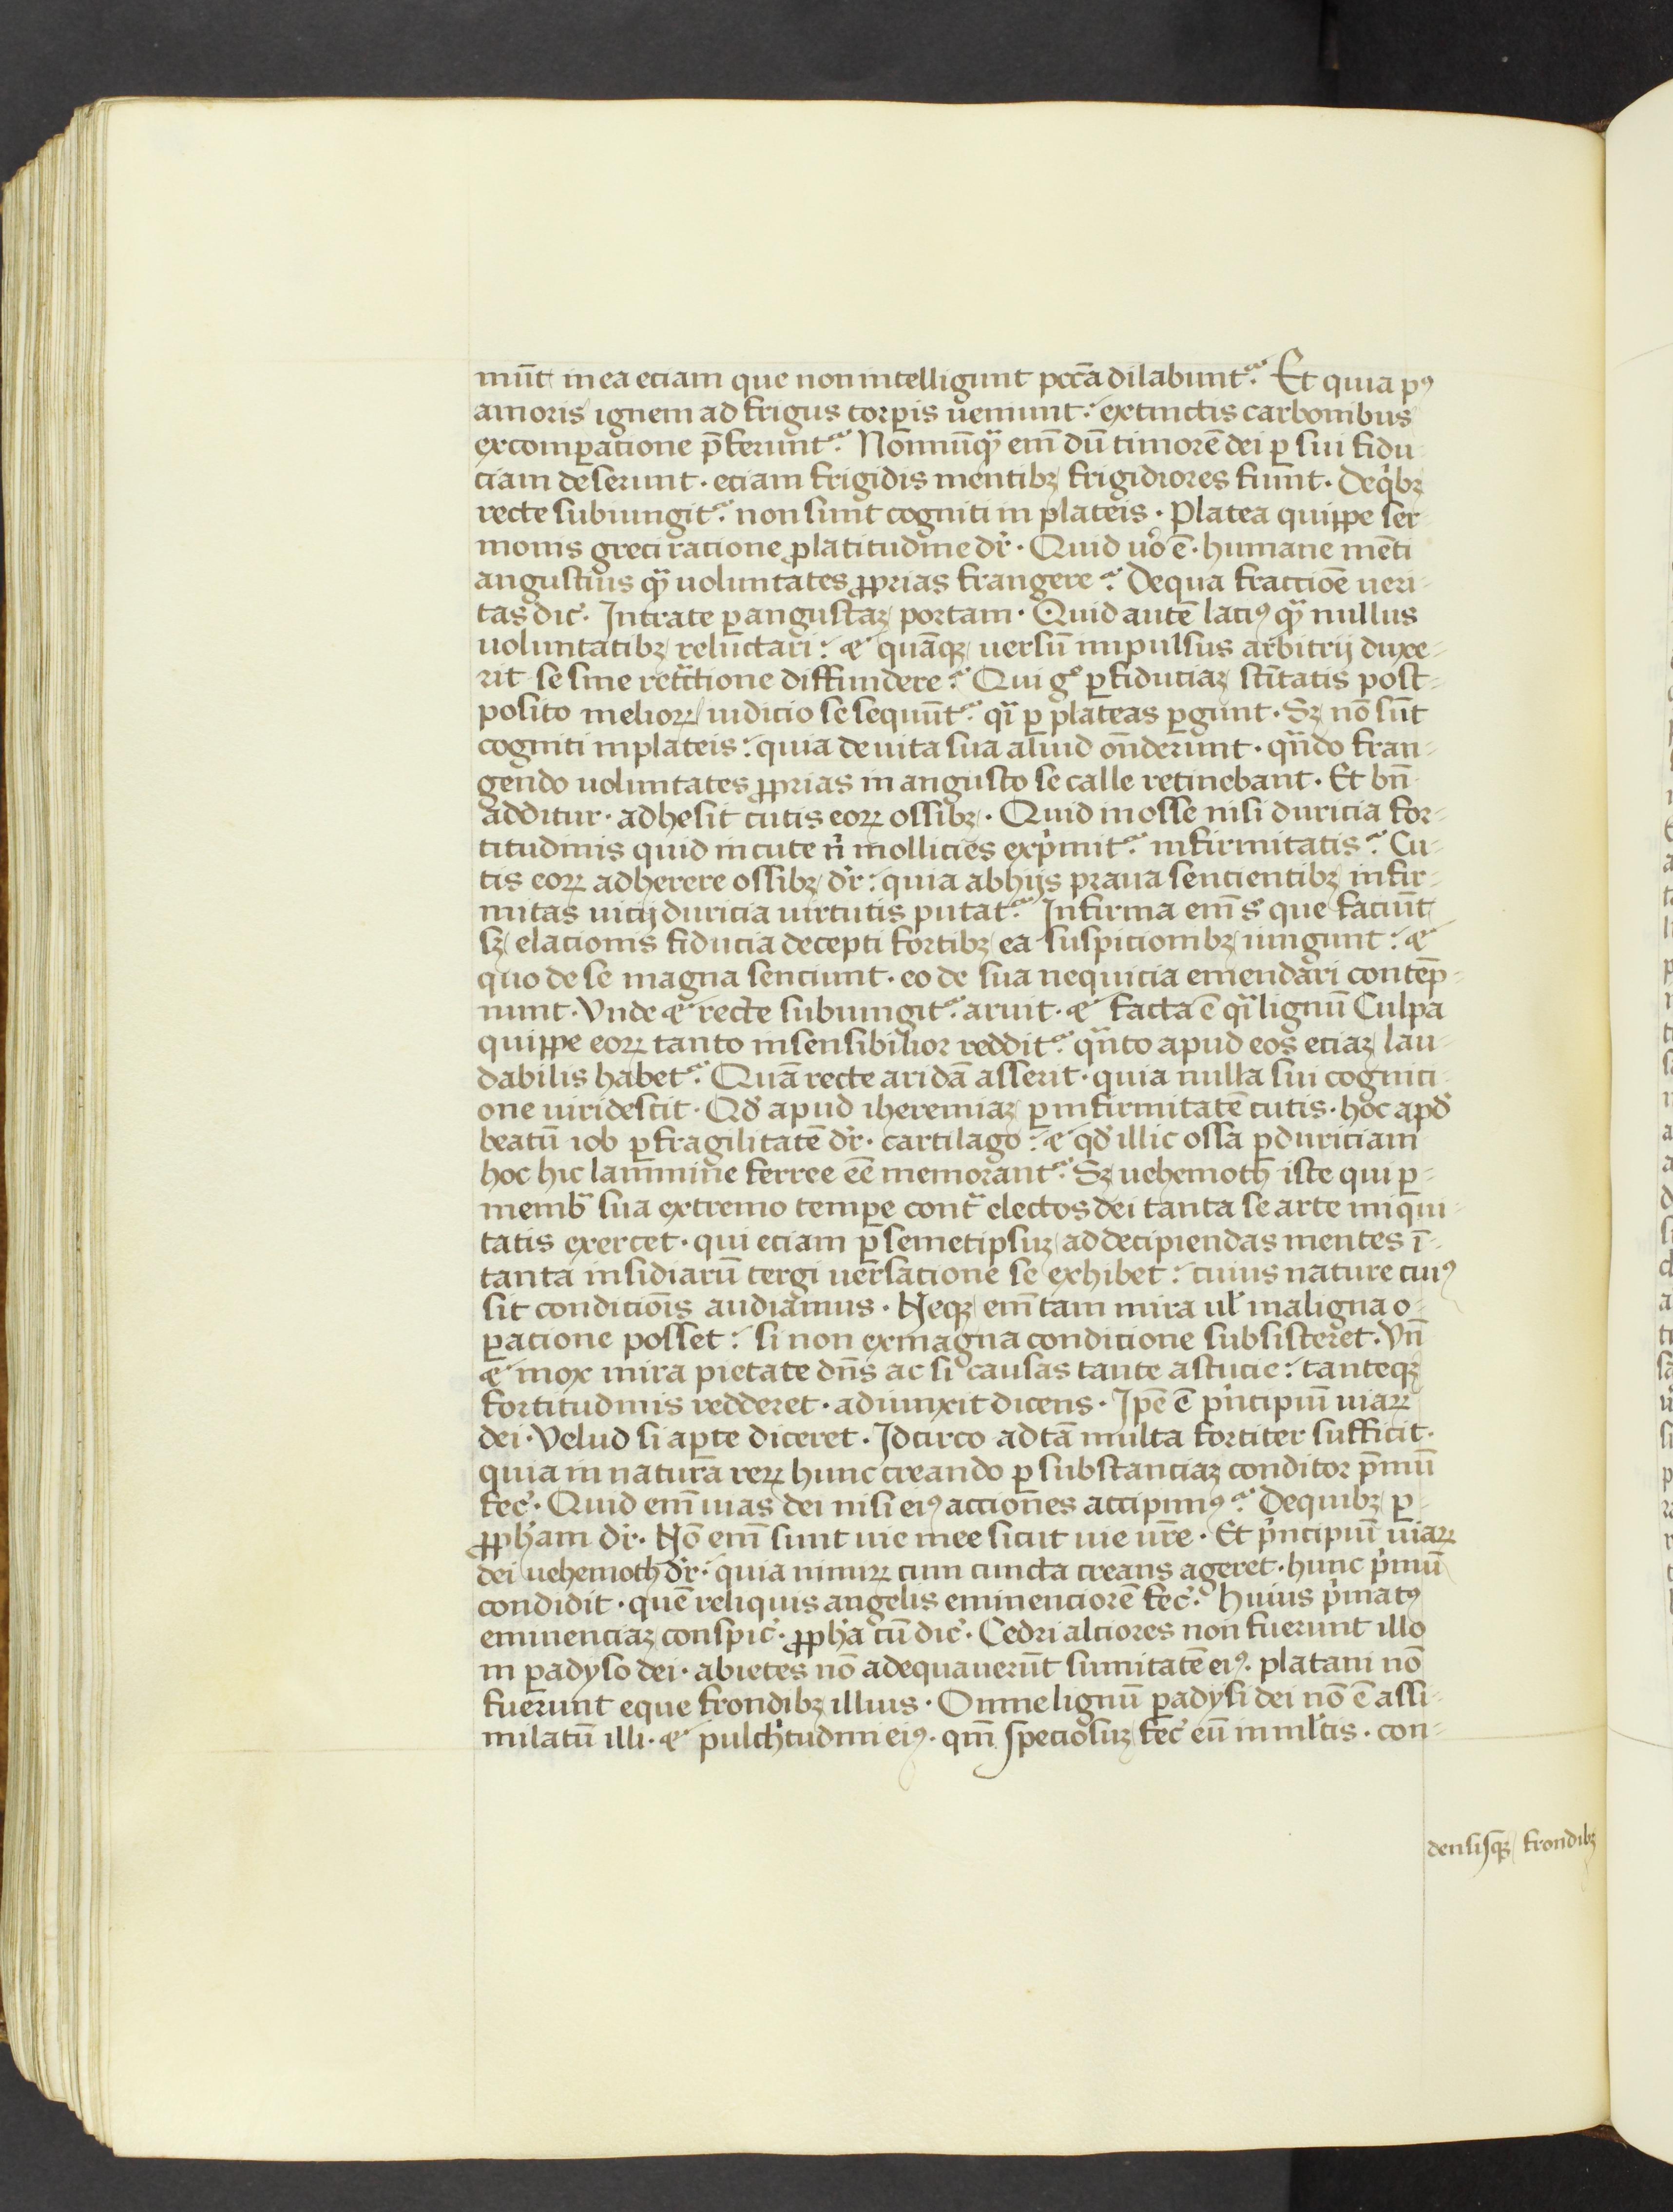 mūt in ea eciam que non intelligunt pccā dilabunt᷑. Et quia pꝰ
amoris ignem ad frigus torꝑis ueniunt: extinctis carbonibus
ex comꝑacione p̄ferunt᷑. Nonnūqᷓ em̄ dū timorē dei ꝑ sui fidu-
ciam deserunt. eciam frigidis mentibꝫ frigidiores fiunt. De qͥbꝫ
recte subiungit᷑. non sunt cogniti in plateis. Platea quippe ser-
monis greci racione ꝓ latitudine dr̄. Quid uͦo ē. humane mēti
angustius qᷓ uoluntates ꝓprias frangere? De qua fraccioē ueri-
tas dic̄. Intrate ꝑ angustaꝫ portam. Quid autē laciꝰ qᷓ nullus
uoluntatibꝫ reluctari: et quāqꝫ uersū impulsus arbitrij duxe-
rit se sine ret͛ctione diffundere? Qui gͦ ꝑ fiduciaꝫ scītatis post-
posito melioꝝ iudicio se sequūt᷑. qᷓi ꝑ plateas ꝑgunt. Sꝫ nō sūt
cogniti in plateis: quia de uita sua aliud on̄derunt. qn̄do fran-
gendo uoluntates ꝓprias in angusto se calle retinebant. Et bn̄
additur. adhesit cutis eoꝝ ossibꝫ. Quid in osse nisi duricia for-
titudinis quid in cute nͥ mollicies expͥmit᷑ infirmitatis? Cu-
tis eoꝝ adherere ossibꝫ dr̄: quia ab hijs praua sencientibꝫ infir-
mitas uicij duricia uirtutis putat᷑. Infirma em̄ sͭ que faciūt
sꝫ elacionis fiducia decepti fortibꝫ ea suspicionibꝫ iungunt: et
quo de se magna senciunt. eo de sua nequicia emendari contēp-
nunt. Vnde et recte subiungit᷑. aruit. et facta ē qᷓi lignū Culpa
quippe eoꝝ tanto insensibilior reddit᷑. qᷓnto apud eos eciaꝫ lau-
dabilis habet᷑. Quā recte aridā asserit. quia nulla sui cognici-
one uiridescit. Qd̄ apud iheremiaꝫ ꝑ infirmitatē cutis. hoc apd̄
beatū iob ꝑ fragilitatē dr̄. cartilago: et qd̄ illic ossa ꝑ duriciam
hoc hic lammine ferree eē memorant᷑. Sꝫ uehemoth iste qui ꝑ-
membᷓ sua extremo temꝑe contᷓ electos dei tanta se arte iniqui-
tatis exercet. qui eciam ꝑ semetipsuꝫ ad decipiendas mentes ī-
tanta insidiarū tergi uersacione se exhibet: cuius nature cuiꝰ
sit condicioīs audiamus. Neqꝫ em̄ tam mira ul̄ maligna o-
ꝑacione posset: si non ex magna condicione subsisteret. Vn̄
et mox mira pietate dn̄s ac si causas tante astucie: tanteqꝫ
fortitudinis redderet. adiunxit dicens. Ipē ē pͥncipiū uiaꝝ
dei. Velud si aꝑte diceret. Idcirco ad tā multa fortiter sufficit.
quia in naturā reꝝ hunc creando ꝑ substanciaꝫ conditor pͥmū
fec̄. Quid em̄ uias dei nisi eiꝰ acciones accipimꝰ? De quibꝫ ꝑ-
ꝓpham dr̄. Nō em̄ sunt uie mee sicut uie ur̄e. Et pͥncipiū uiaꝝ
dei uehemoth dr̄: quia nimiꝝ cum cuncta creans ageret. hunc pͥmū
condidit. quē reliquis angelis eminenciorē fec̄. Huius pͥmatꝰ
eminenciaꝫ conspic̄. ꝓpha cū dic̄. Cedri alciores non fuerunt illo
in ꝑadyso dei. abietes nō adequauerūt sumitatē eiꝰ. platani nō
fuerunt eque frondibꝫ illius. Omne lignū ꝑadysi dei nō ē assi-
milatū illi. et pulchͥtudini eiꝰ. qm̄ speciosuꝫ fec̄ eū in ml̄tis. con-
densisqꝫ frondibꝫ